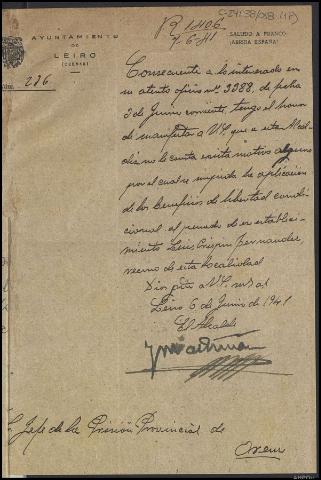 C-24138/018 (17)
R 1406
7-6-41
AYUNTAMIENTO
DE
LEIRO
SALUDO A FRANCO:
¡ARRIBA ESPAÑA!
Núm. 276
Consecuente a lo interesado en
su atento oficio nº 3388, de fecha
3 de Junio corriente, tengo el honor
de manifestar a V.S. que a esta Alcal-
día no le consta exista motivo alguno
por el cual se impida la aplicación
de los beneficios de libertad condi-
cional al penado de ese estableci-
miento Luis Crespin Fernandez,
vecino de esta localidad
Dios gde a V.S. ms as
Leiro 6 de Junio de 1941
El Alcalde
Jefe de la Prisión Provincial de
Orense